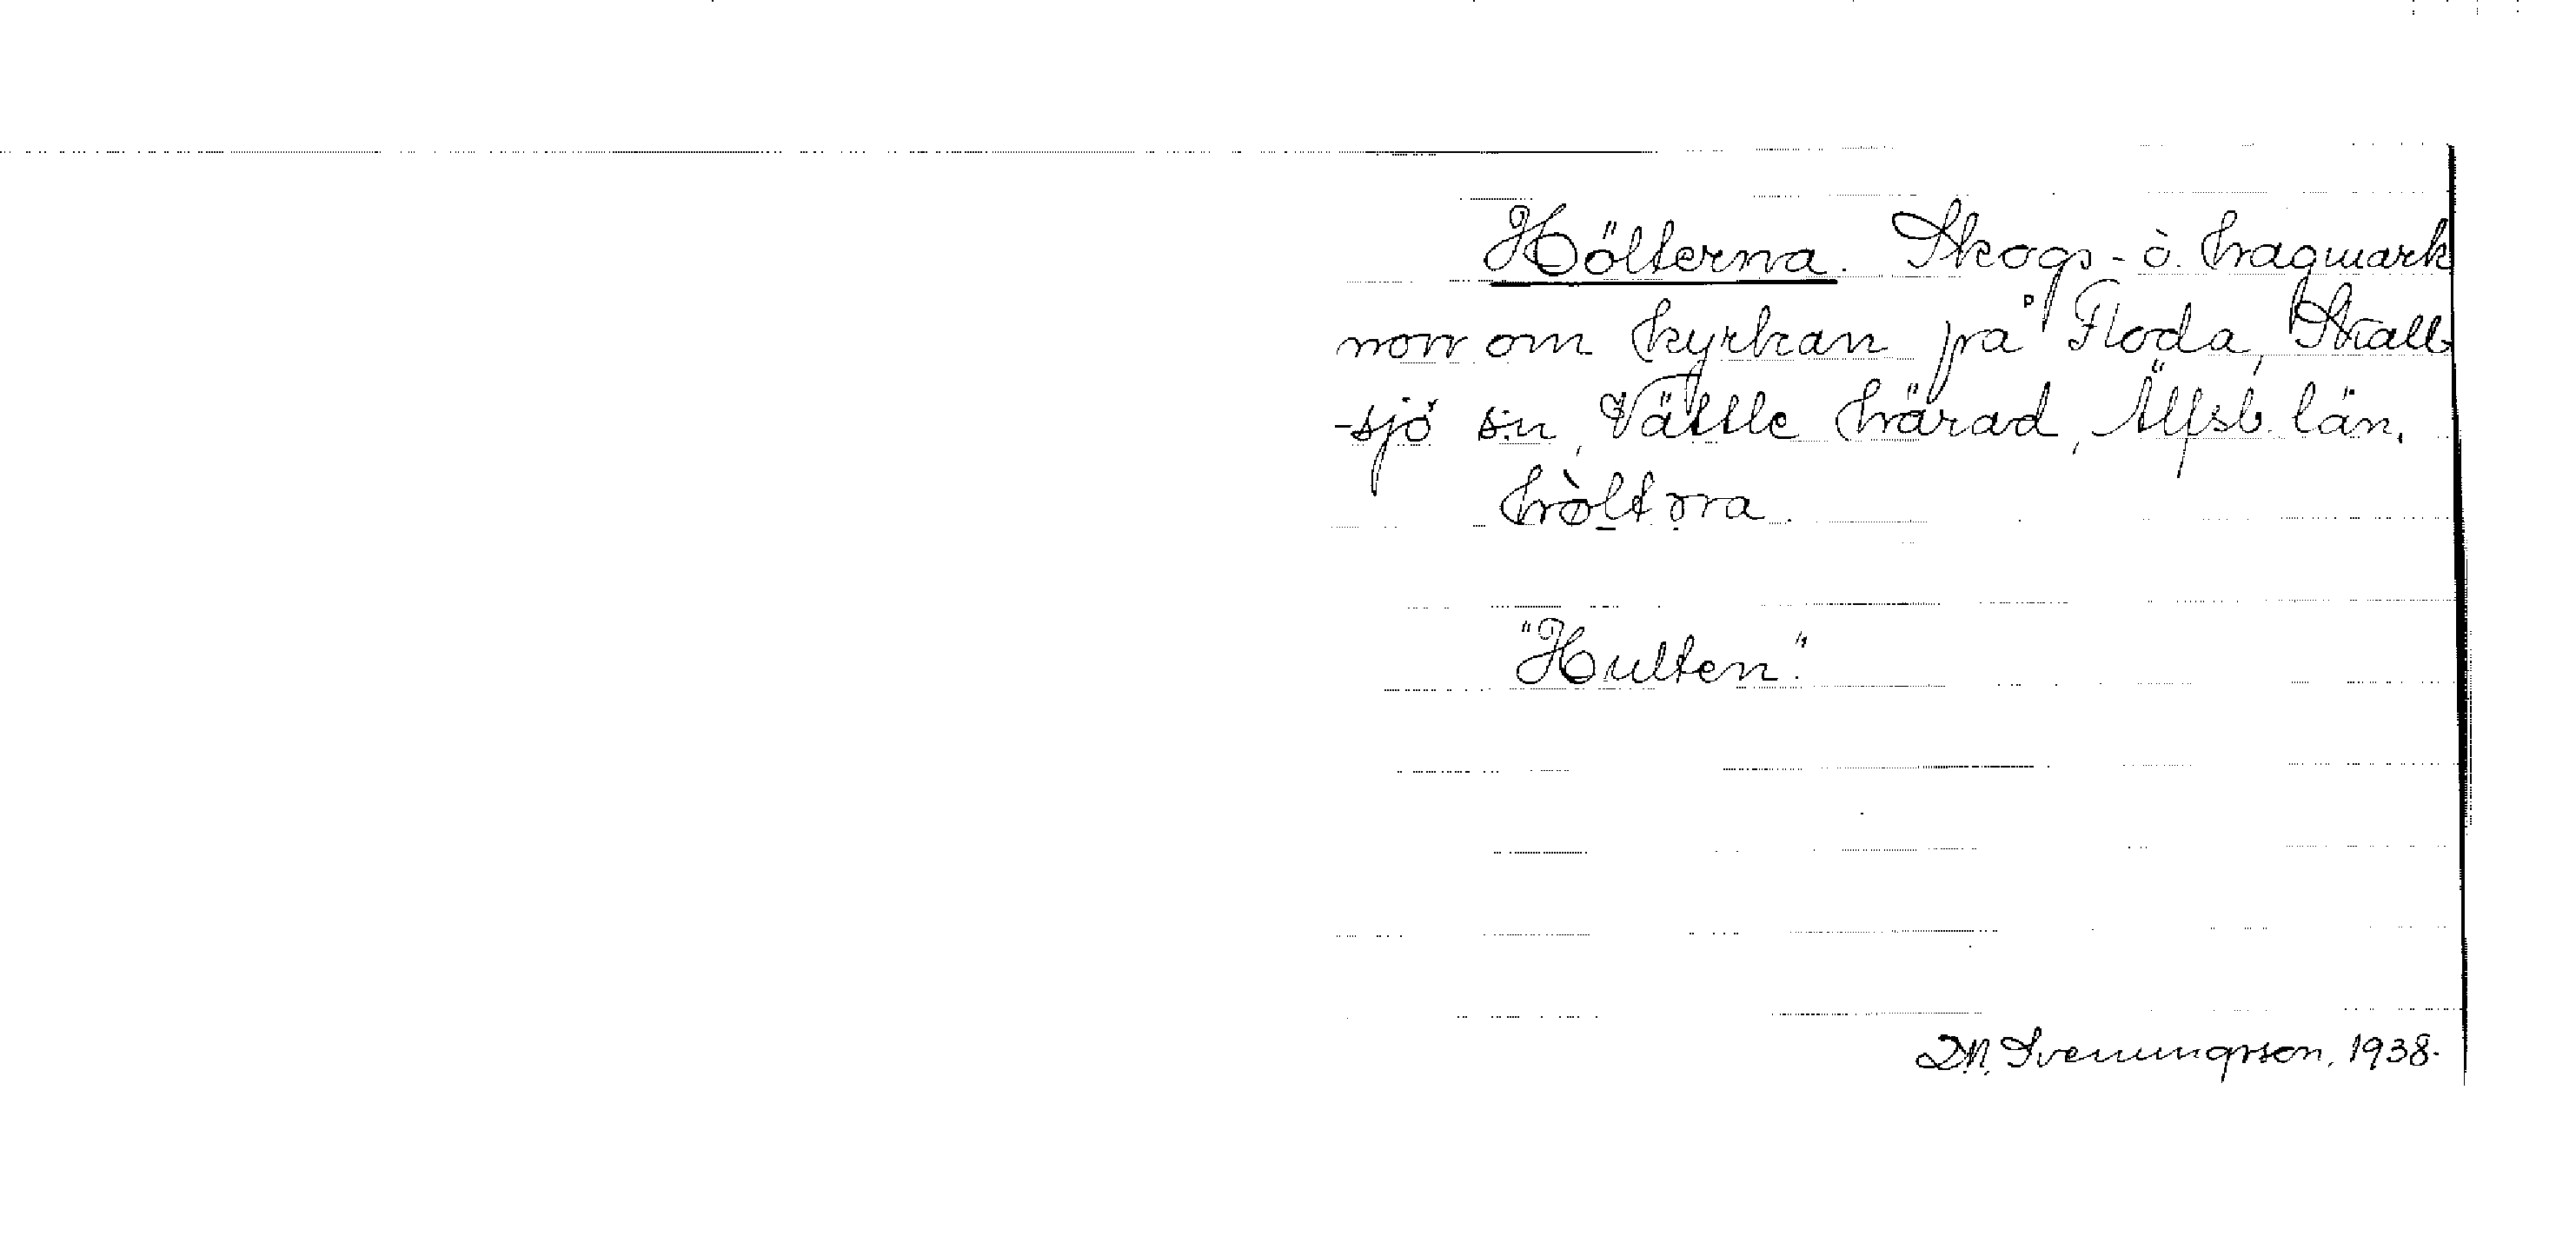 Hölterna. Skogs- o. hagmark
norr om kyrkan på Floda, Skall-
-sjö sn, Vättle härad, Älfsb. län.
hòltɔra.
"Hulten".
D.N. Svenningsson, 1938.